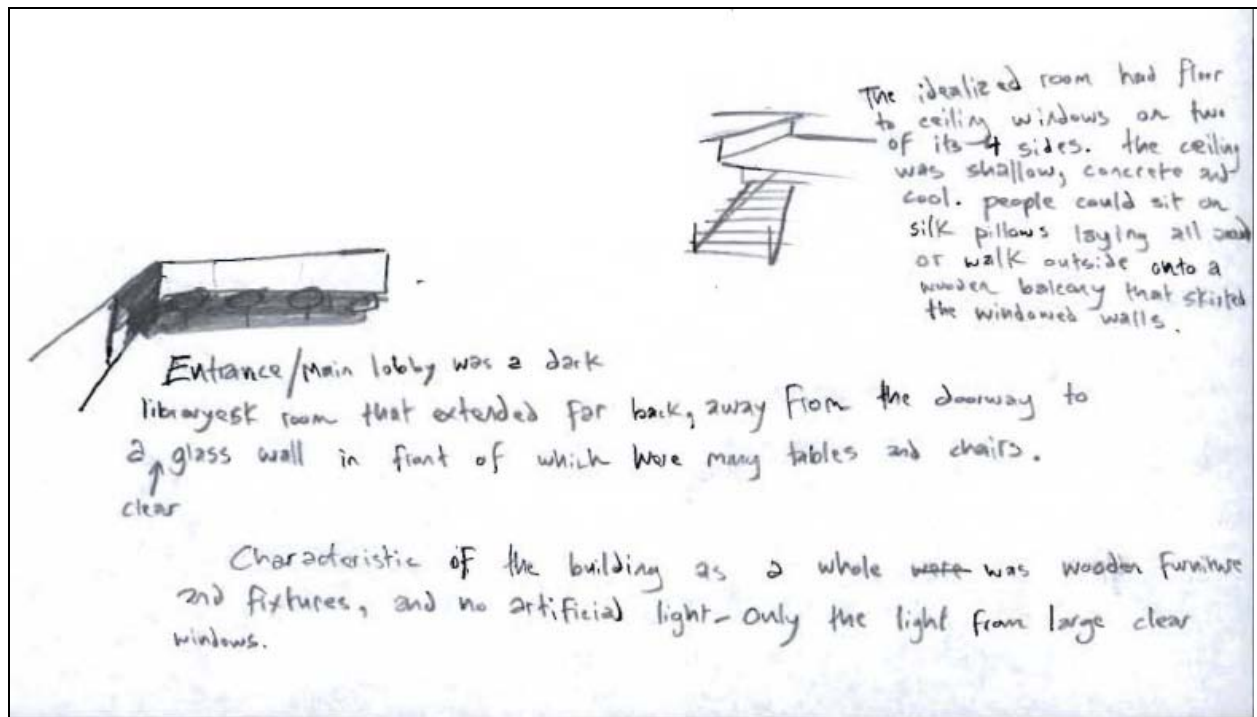 The idealized room had floor
to ceiling windows on two
of its 4 sides. the ceiling
was shallow, concrete and
cool. people could sit on
silk pillows laying all
or walk outside onto a
wooden balcony that skirted
the windowed walls.
Entrance/main lobby was a dark
libraryesk room that extended far back, away from the doorway to
a glass wall in front of which were many tables and chairs.
clear
Characteristic of the building as a whole were was wooden furniture
and fixtures, and no artificial light - Only the light from large clear
windows.